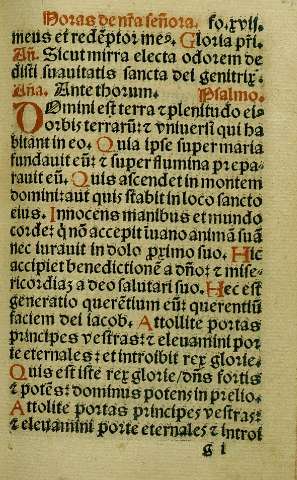 Horas de nr̃a señora. fo.xvij.
meus et redẽptor me⁹. Gloria pr̃i.
Añ. Sicut mirra electa odorem de
disti suauitatis sancta dei genitrix.
Aña. Ante thorum. Psalmo.
Domini est terra ⁊ plenitudo ei⁹
orbis terrarũ: ⁊ vniuersi qui ha
bitant in eo. Quia ipse super maria
fundauit eũ: ⁊ super flumina prepa
rauit eũ. Quis ascendet in montem
domini: aut quis stabit in loco sancto
eius. Innocens manibus et mundo
corde: q̃ nõ accepit ĩ uano animã suã
nec iurauit in dolo ꝓximo suo. Hic
accipiet benedictionẽ a dño: ⁊ mise-
ricordiã a deo salutari suo. Hec est
generatio querẽtium eũ: querentiũ
faciem dei iacob. Attollite portas
principes vestras: ⁊ eleuamini por
te eternales: et introibit rex glorie.
Quis est iste rex glorie/ dñs fortis
⁊ potẽs: dominus potens in prelio.
Attolite portas principes vestras:
⁊ eleuamini porte eternales ⁊ introi
g i